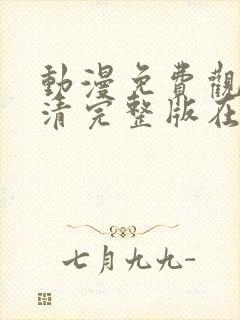 動漫免費觀
清完整版在
七月九九-